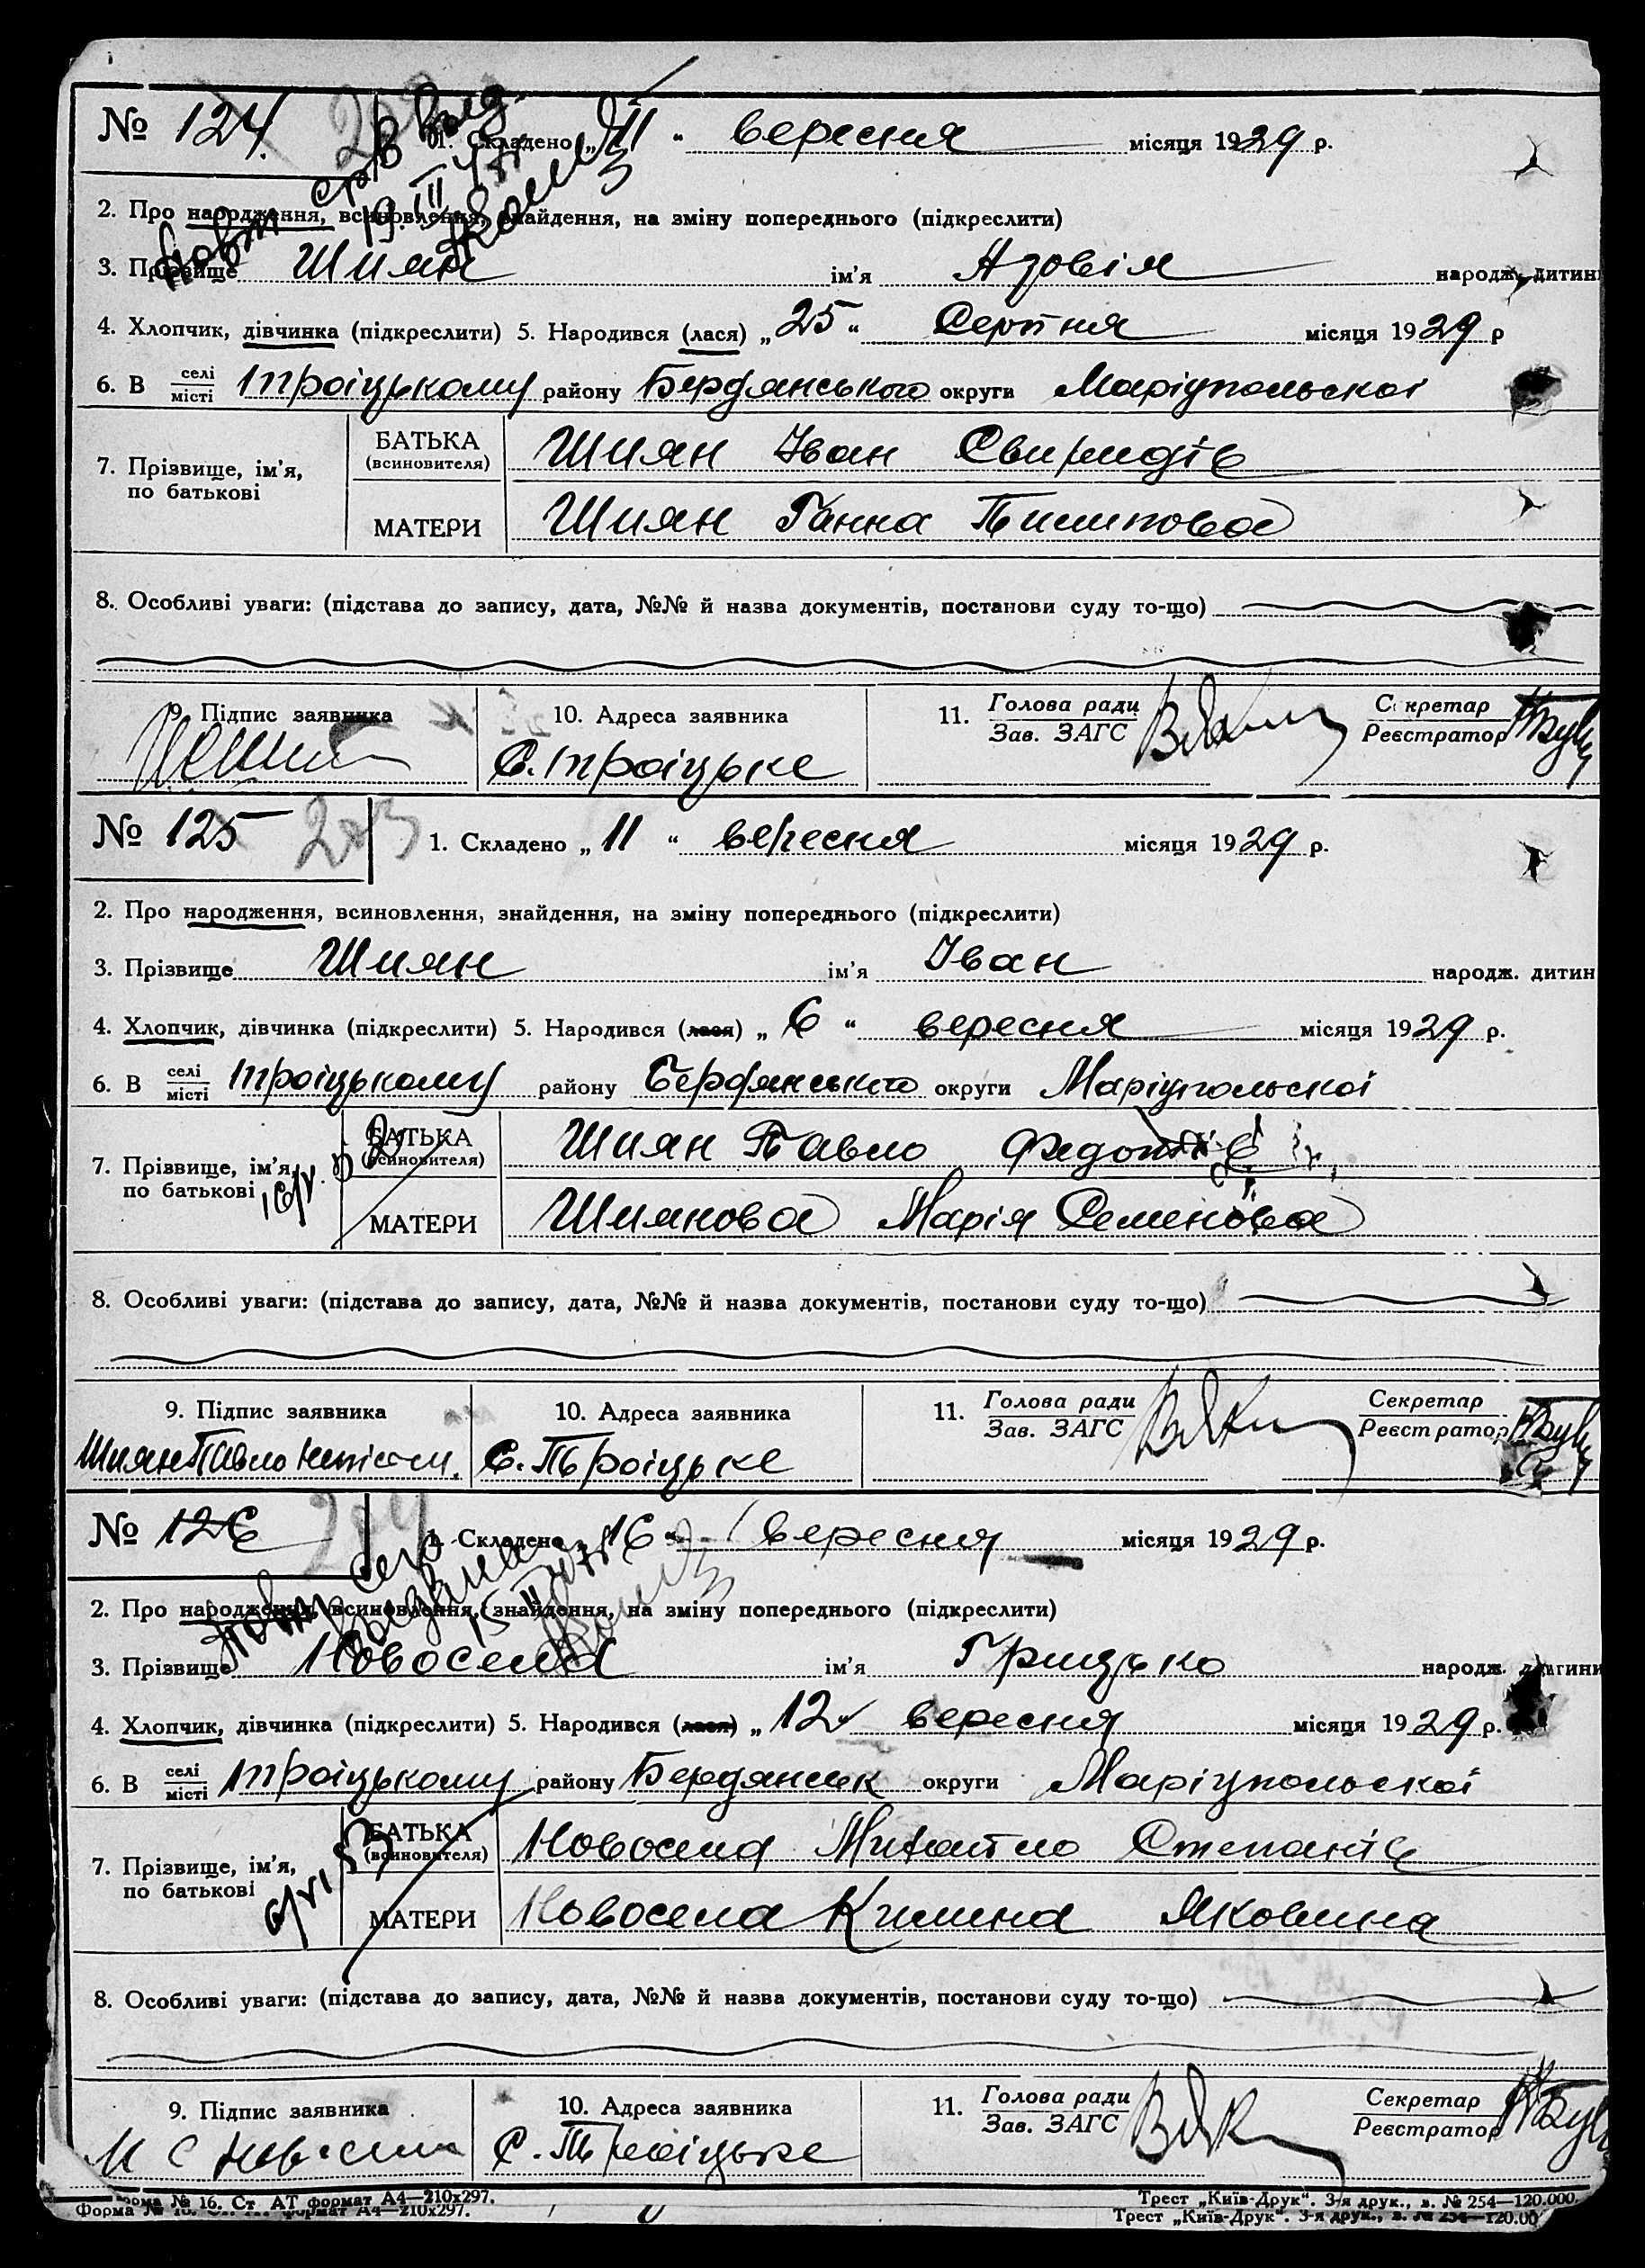 № 124. 1. Складено „11“ вересня місяця 1929 р.
2. Про народження, всиновлення, знайдення, на зміну попереднього (підкреслити)
3. Прізвище Шиян ім'я Азовія народж. дитини
4. Хлопчик, дівчинка (підкреслити) 5. Народився (лася) „25“ Серпня місяця 1929 р
6. В селі місті Троіцькому району Бердянського округи Маріупольскоі
7. Прізвище, ім'я, по батькові
БАТЬКА (всиновителя) Шиян Іван Свиридів
МАТЕРИ Шиян Ганна Пилипова
8. Особливі уваги: (підстава до запису, дата, №№ й назва документів, постанови суду то-що)
9. Підпис заявника 10. Адреса заявника 11. Голова ради Зав. ЗАГС Секретар Реєстратор
С. Троіцьке
№ 125 203 1. Складено „11“ вересня місяця 1929 р.
2. Про народження, всиновлення, знайдення, на зміну попереднього (підкреслити)
3. Прізвище Шиян ім'я Іван народж. дитин
4. Хлопчик, дівчинка (підкреслити) 5. Народився (лася) „6“ вересня місяця 1929 р.
6. В селі місті Троіцькому району Бердянського округи Маріупольскоі
7. Прізвище, ім'я, по батькові
БАТЬКА (всиновителя) Шиян Павло
МАТЕРИ Шиянова Марія Семенова
8. Особливі уваги: (підстава до запису, дата, №№ й назва документів, постанови суду то-що)
9. Підпис заявника 10. Адреса заявника 11. Голова ради Зав. ЗАГС Секретар Реєстратор
Шиян Павло С. Троіцьке
№ 126 204 1. Складено „16“ вересня місяця 1929 р.
2. Про народження, всиновлення, знайдення, на зміну попереднього (підкреслити)
3. Прізвище Новосела ім'я Грицько народж. дитини
4. Хлопчик, дівчинка (підкреслити) 5. Народився (лася) „12“ вересня місяця 1929 р.
6. В селі місті Троіцькому району Бердянськ округи Маріупольскоі
7. Прізвище, ім'я, по батькові
БАТЬКА (всиновителя) Новосела Михайло Степанів
МАТЕРИ Новосела Килина Яковлина
8. Особливі уваги: (підстава до запису, дата, №№ й назва документів, постанови суду то-що)
9. Підпис заявника 10. Адреса заявника 11. Голова ради Зав. ЗАГС Секретар Реєстратор
С. Троіцьке
Форма № 16. Ст. АТ формат А4—210х297. Трест „Київ-Друк“. 3-я друк., з. № 254—120.000.
Форма № 16. Ст. АТ формат А4—210х297. Трест „Київ-Друк“. 3-я друк., з. № 254—120.00